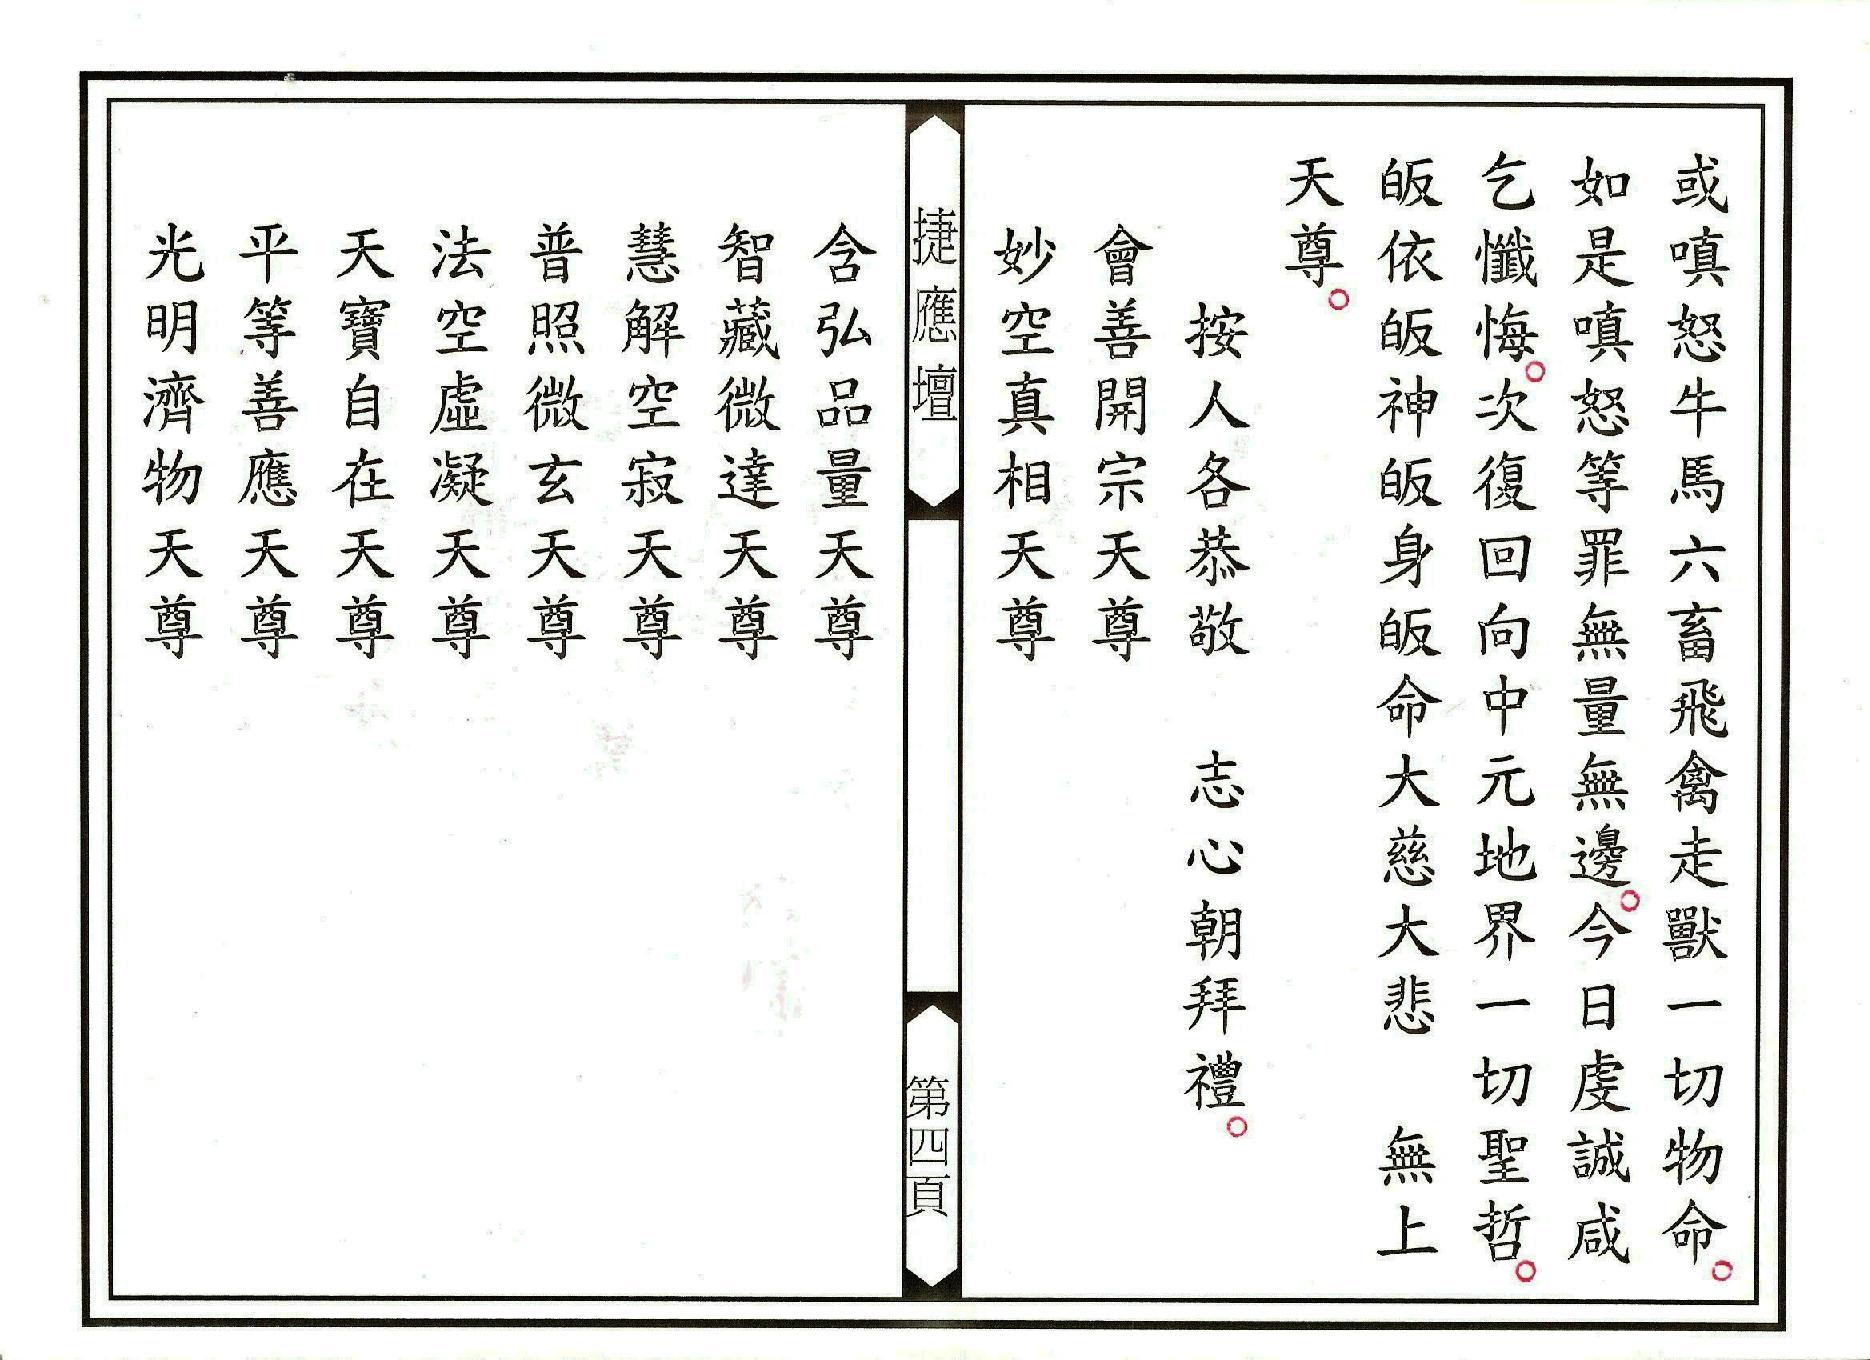 或嗔怒牛馬六畜飛禽走獸一切物命。
如是嗔怒等罪無量無邊。今日虔誠咸
乞懺悔。次復回向中元地界一切聖哲。
皈依皈神皈身皈命大慈大悲　無上
天尊。
按人各恭敬　志心朝拜禮。
會善開宗天尊
妙空真相天尊
捷應壇
第四頁
含弘品量天尊
智藏微達天尊
慧解空寂天尊
普照微玄天尊
法空虛凝天尊
天寶自在天尊
平等善應天尊
光明濟物天尊